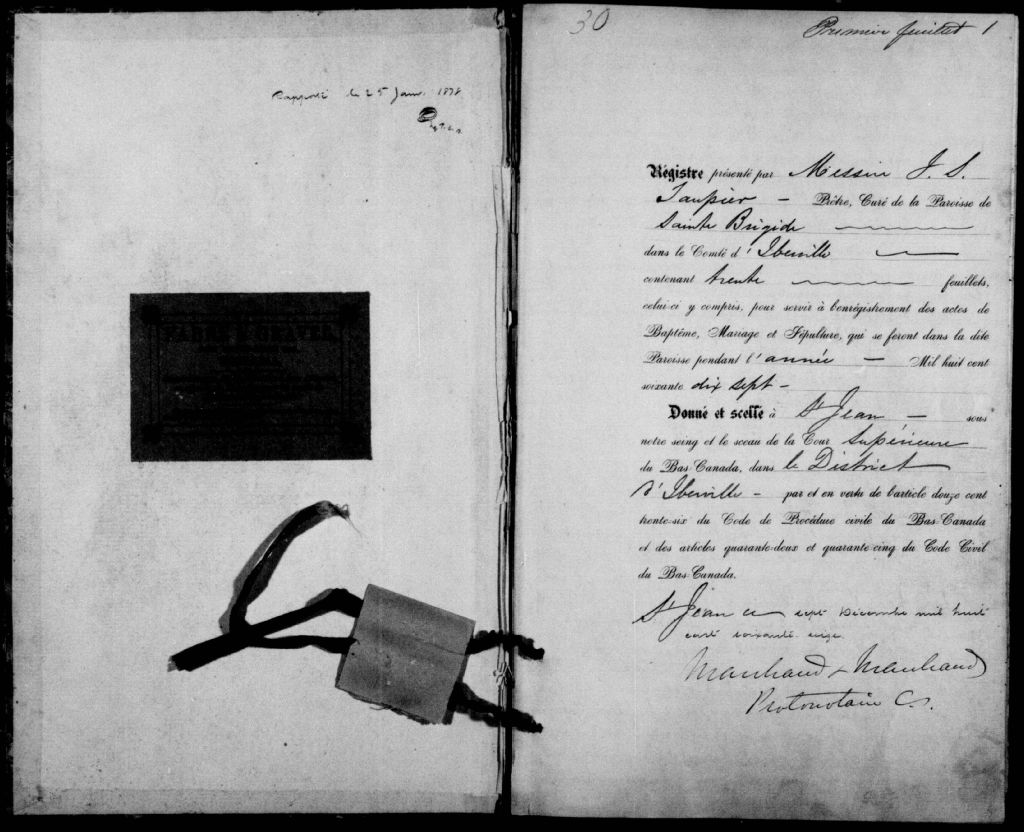 Rapporté le 25 Janv. 1878
30
Premier feuillet 1
Régistre présenté par Messire J. S.
Taupier – Prêtre, Curé de la Paroisse de
Sainte Brigide
dans le Comté d'Iberville
contenant trente feuillets,
celui-ci y compris, pour servir à l'enrégistrement des actes de
Baptême, Mariage et Sépulture, qui se feront dans la dite
Paroisse pendant l'année – Mil huit cent
soixante dix sept –
Donné et scellé à St Jean – sous
notre seing et le sceau de la Cour Supérieure
du Bas-Canada, dans le District
d'Iberville – par et en vertu de l'article douze cent
trente-six du Code de Procédure civile du Bas-Canada
et des articles quarante-deux et quarante-cinq du Code Civil
du Bas-Canada.
St Jean ce sept Décembre mil huit
cent soixante seize
Marchand & Marchand
Protonotaire C. S.